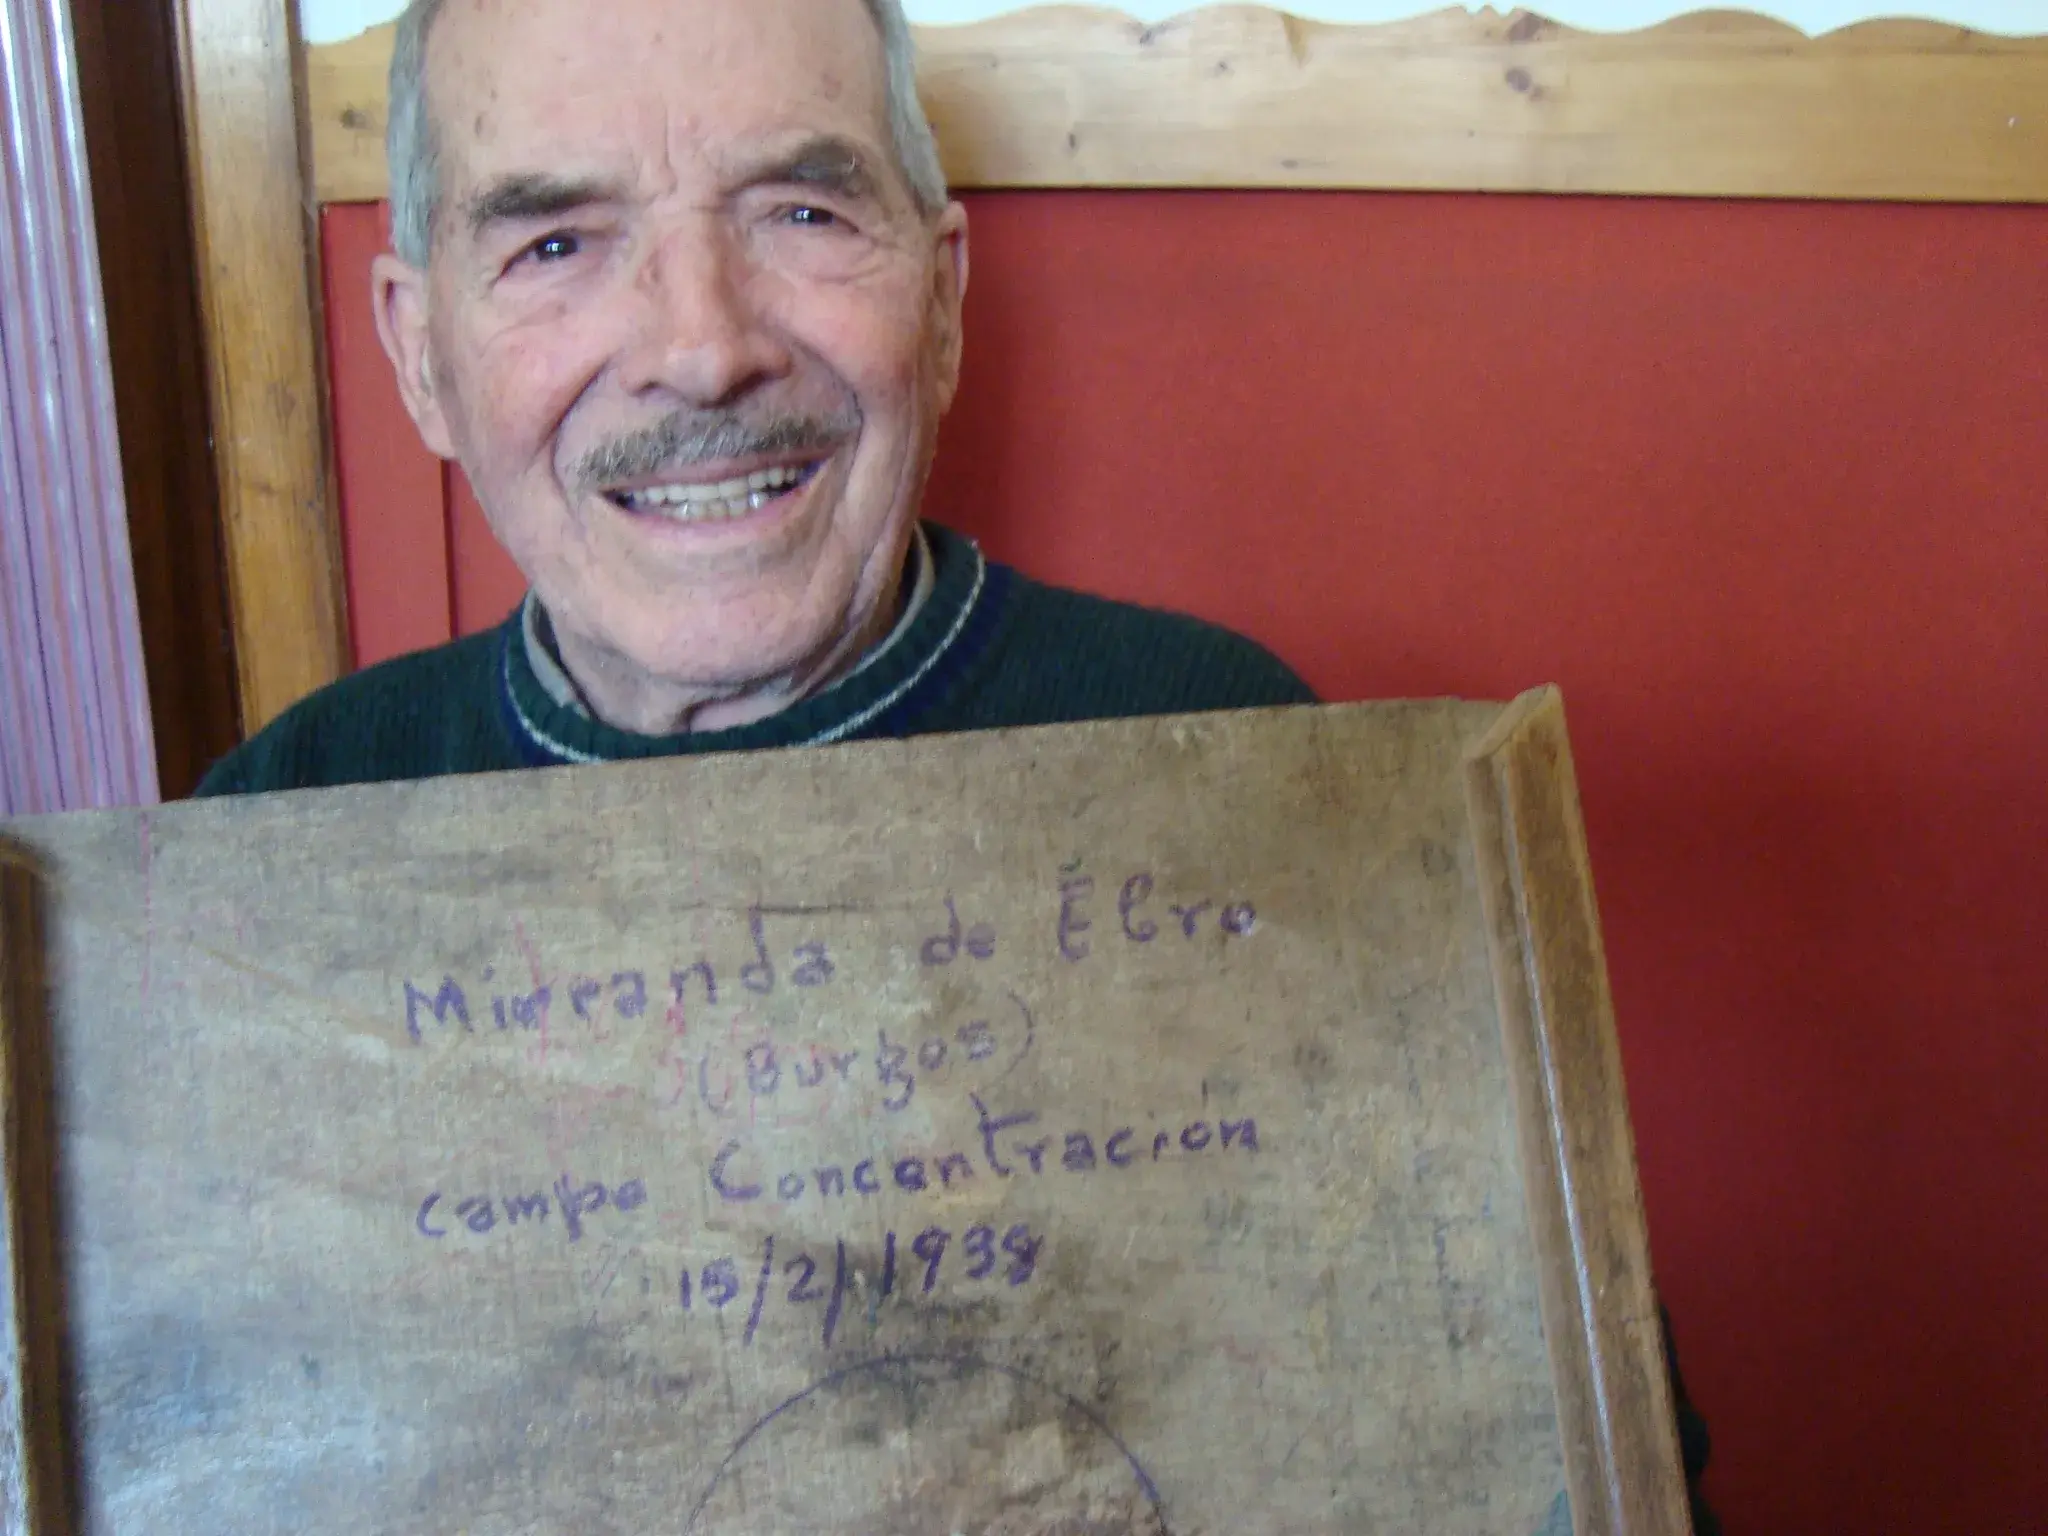 Miranda de Ebro
(Burgos)
Campo Concentración
15/2/1938